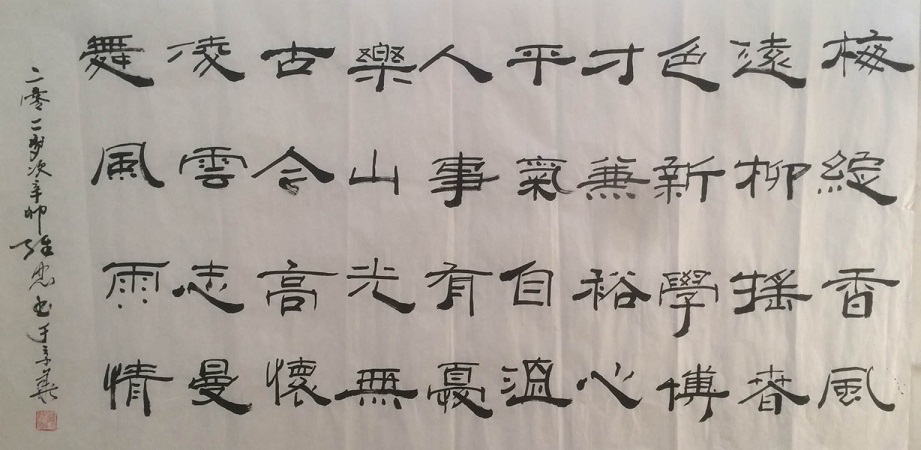 梅綻香風
遠柳搖春
色新學博
才兼裕心
平氣自溫
人事有憂
樂山光無
古今高懷
凌雲志曼
舞風雨情
二零一一歲次辛卯 书于京華